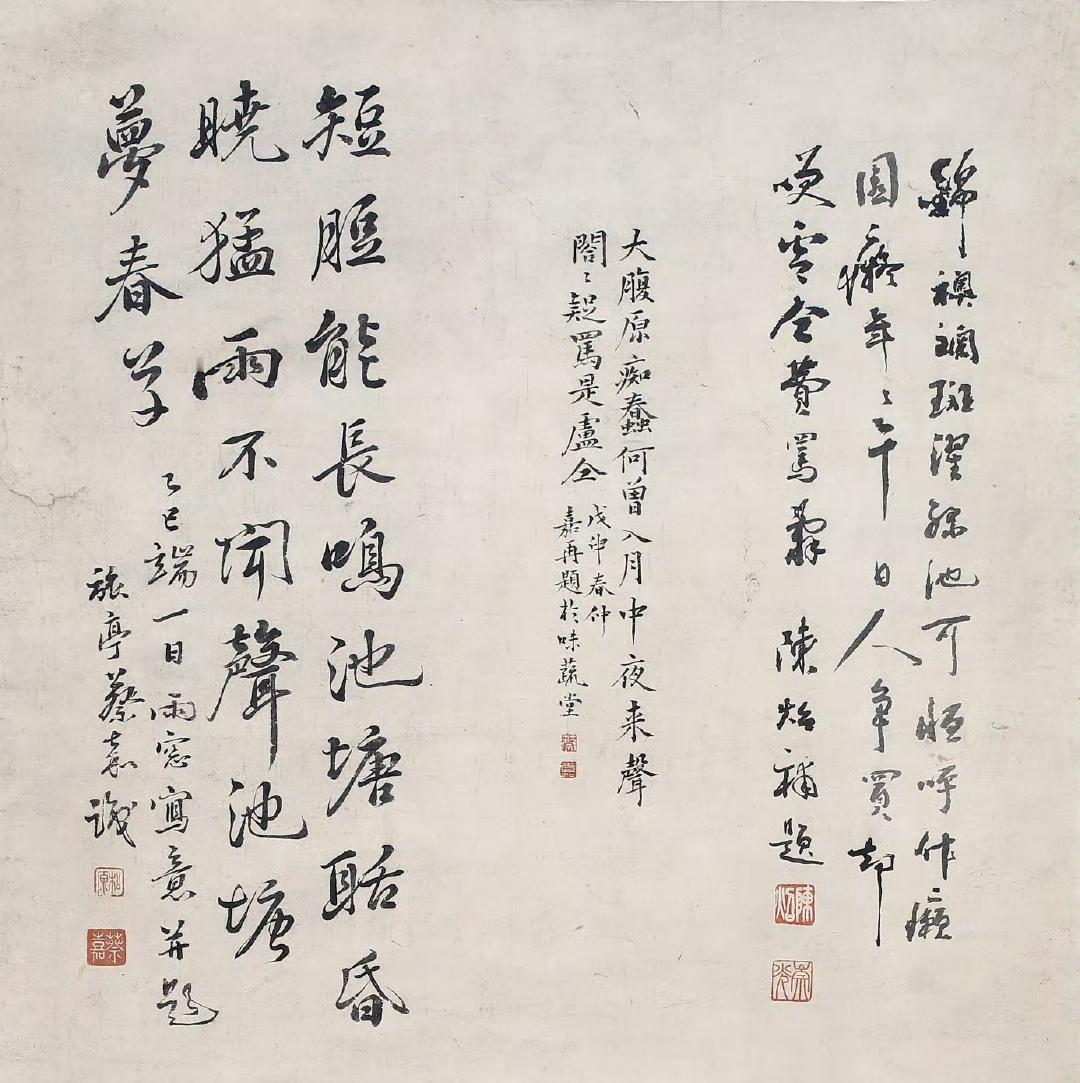 錦襖斕斑濯綠池可呼作癩
團癡年〻午日人争買却
咲盧仝費罵辭 陳補題
大腹原痴蠢何曾入月中夜来聲
閤〻疑罵是盧仝
戊申春仲
嘉再題於味蔬堂
短脰能長鳴池塘聒昏
曉猛雨不聞聲池塘
夢春草
乙巳端一日雨窓寫意并題
旅亭蔡嘉識
松原
蔡嘉